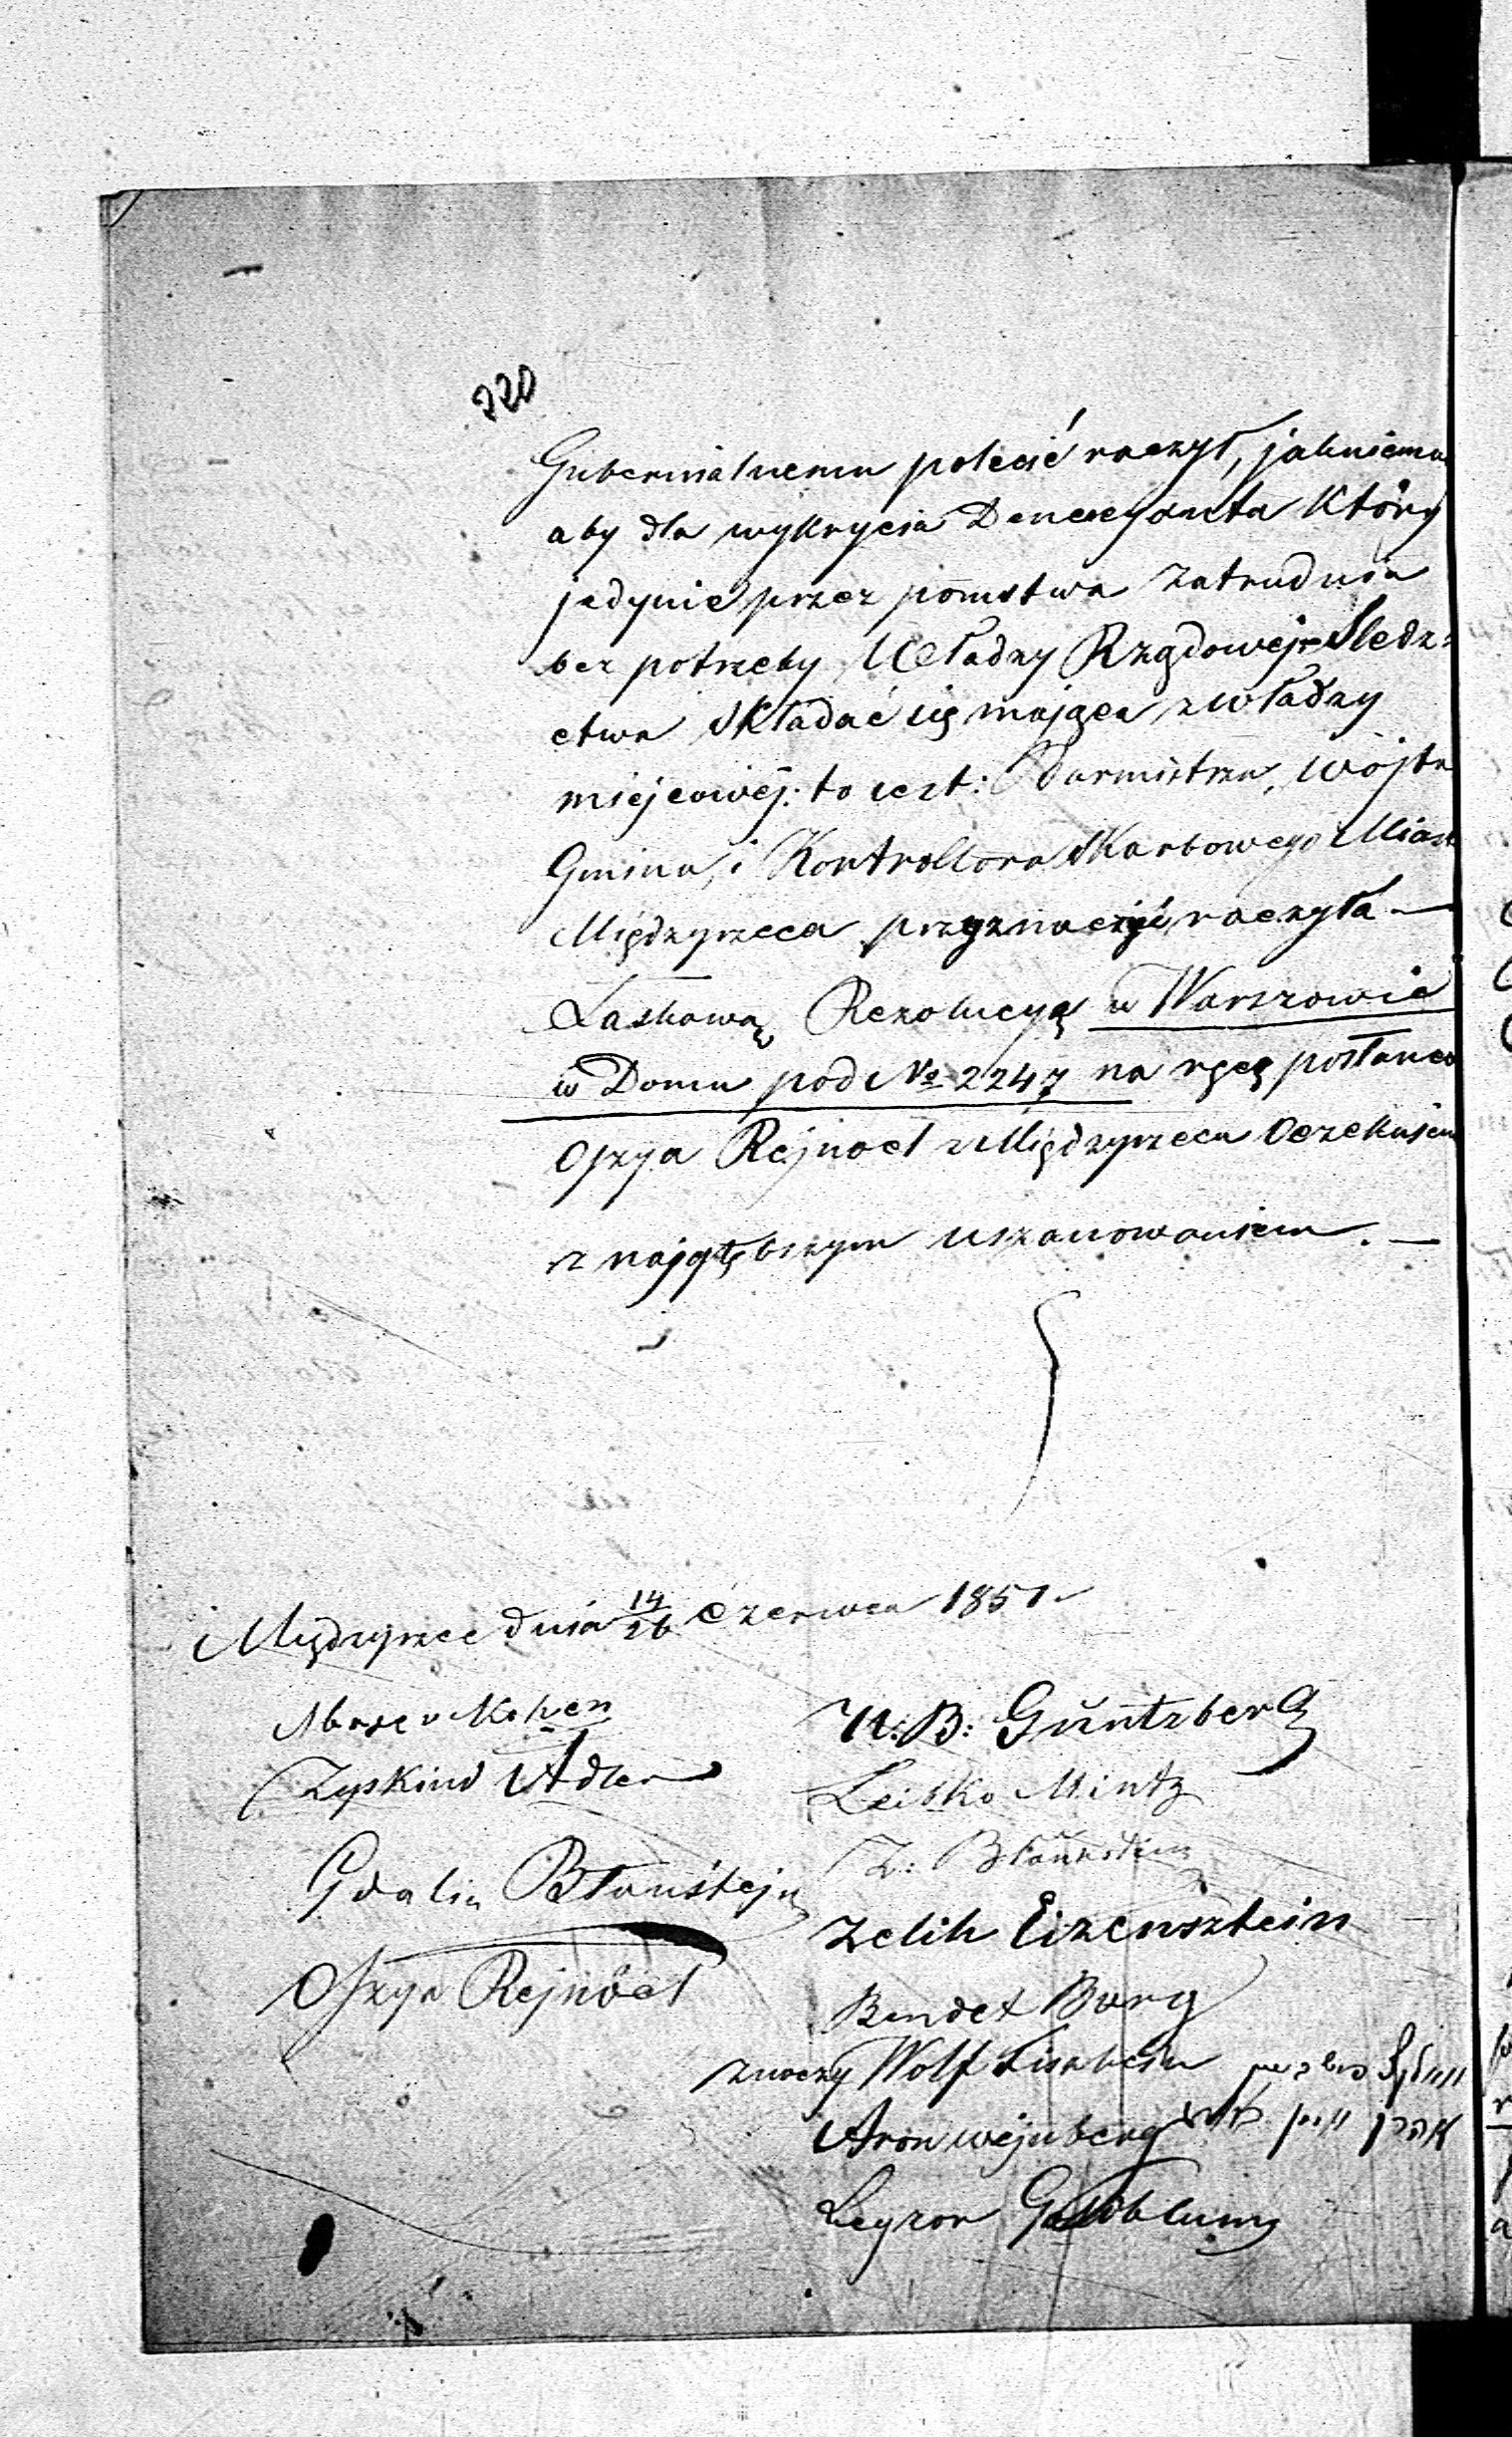 220
Gubernialnemu polecić raczył, jakniemu
aby dla wykrycia Denecyanta który
jedynie przez pomstwa zatrudnia
bez potrzeby Władzy Rządowej Sledz=
ctwa składać się mająca z władzy
miejscowéj: to iest: Burmistrza, Wojta
Gmina, i Kontrollora Skarbowego Miast
Międzyrzeca przyznaczyć raczyła —
Laskawą Rezolucyą w Warszowie
w Domu pod No 2247 na ręcę posłanca
Ojzya Rejnoet z Międzyrzeca Oczekujem
z najgłębszym uszanowaniem. —
Międzyrzec dnia 14/26 Czerwca 1851
Kohen
Zyskind Adler
Gdalia Błausztejn
Ojzya Rejnoet
N. B: Güntzberg
Leibko Mintz
Z: Blaunstein
Zelik Eizensztein
Bendet Barg
znaczy Wolf
Aron wejnberg
אהרן
Leyzor Goldblum